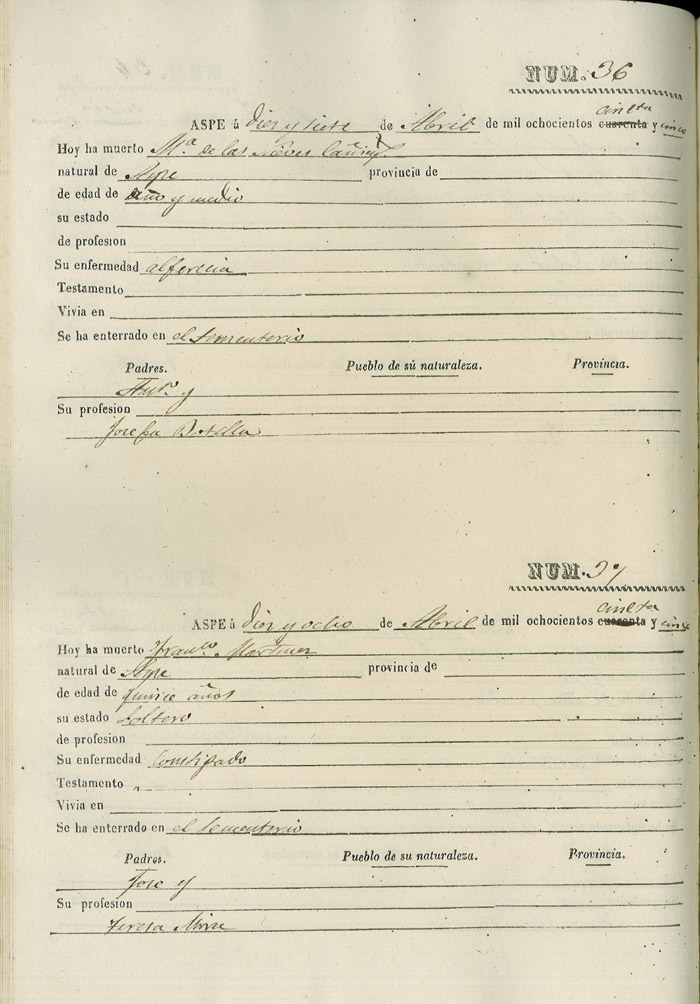 NUM. 36
ASPE á Diez y siete de Abril de mil ochocientos cincta cuarenta y cinco
Hoy ha muerto M.ª de las Nieves
natural de Aspe provincia de
de edad de año y medio
su estado
de profesion
Su enfermedad alferecia
Testamento
Vivia en
Se ha enterrado en el Sementerio
Padres. Pueblo de sú naturaleza. Provincia.
Ant.º y
Su profesion
Josefa Botella
NUM. 37
ASPE á Diez y ocho de Abril de mil ochocientos cincta cuarenta y cinco
Hoy ha muerto Fran.co Martinez
natural de Aspe provincia de
de edad de quince años
su estado Soltero
de profesion
Su enfermedad Constipado
Testamento
Vivia en
Se ha enterrado en el Sementerio
Padres. Pueblo de su naturaleza. Provincia.
Jose y
Su profesion
Teresa